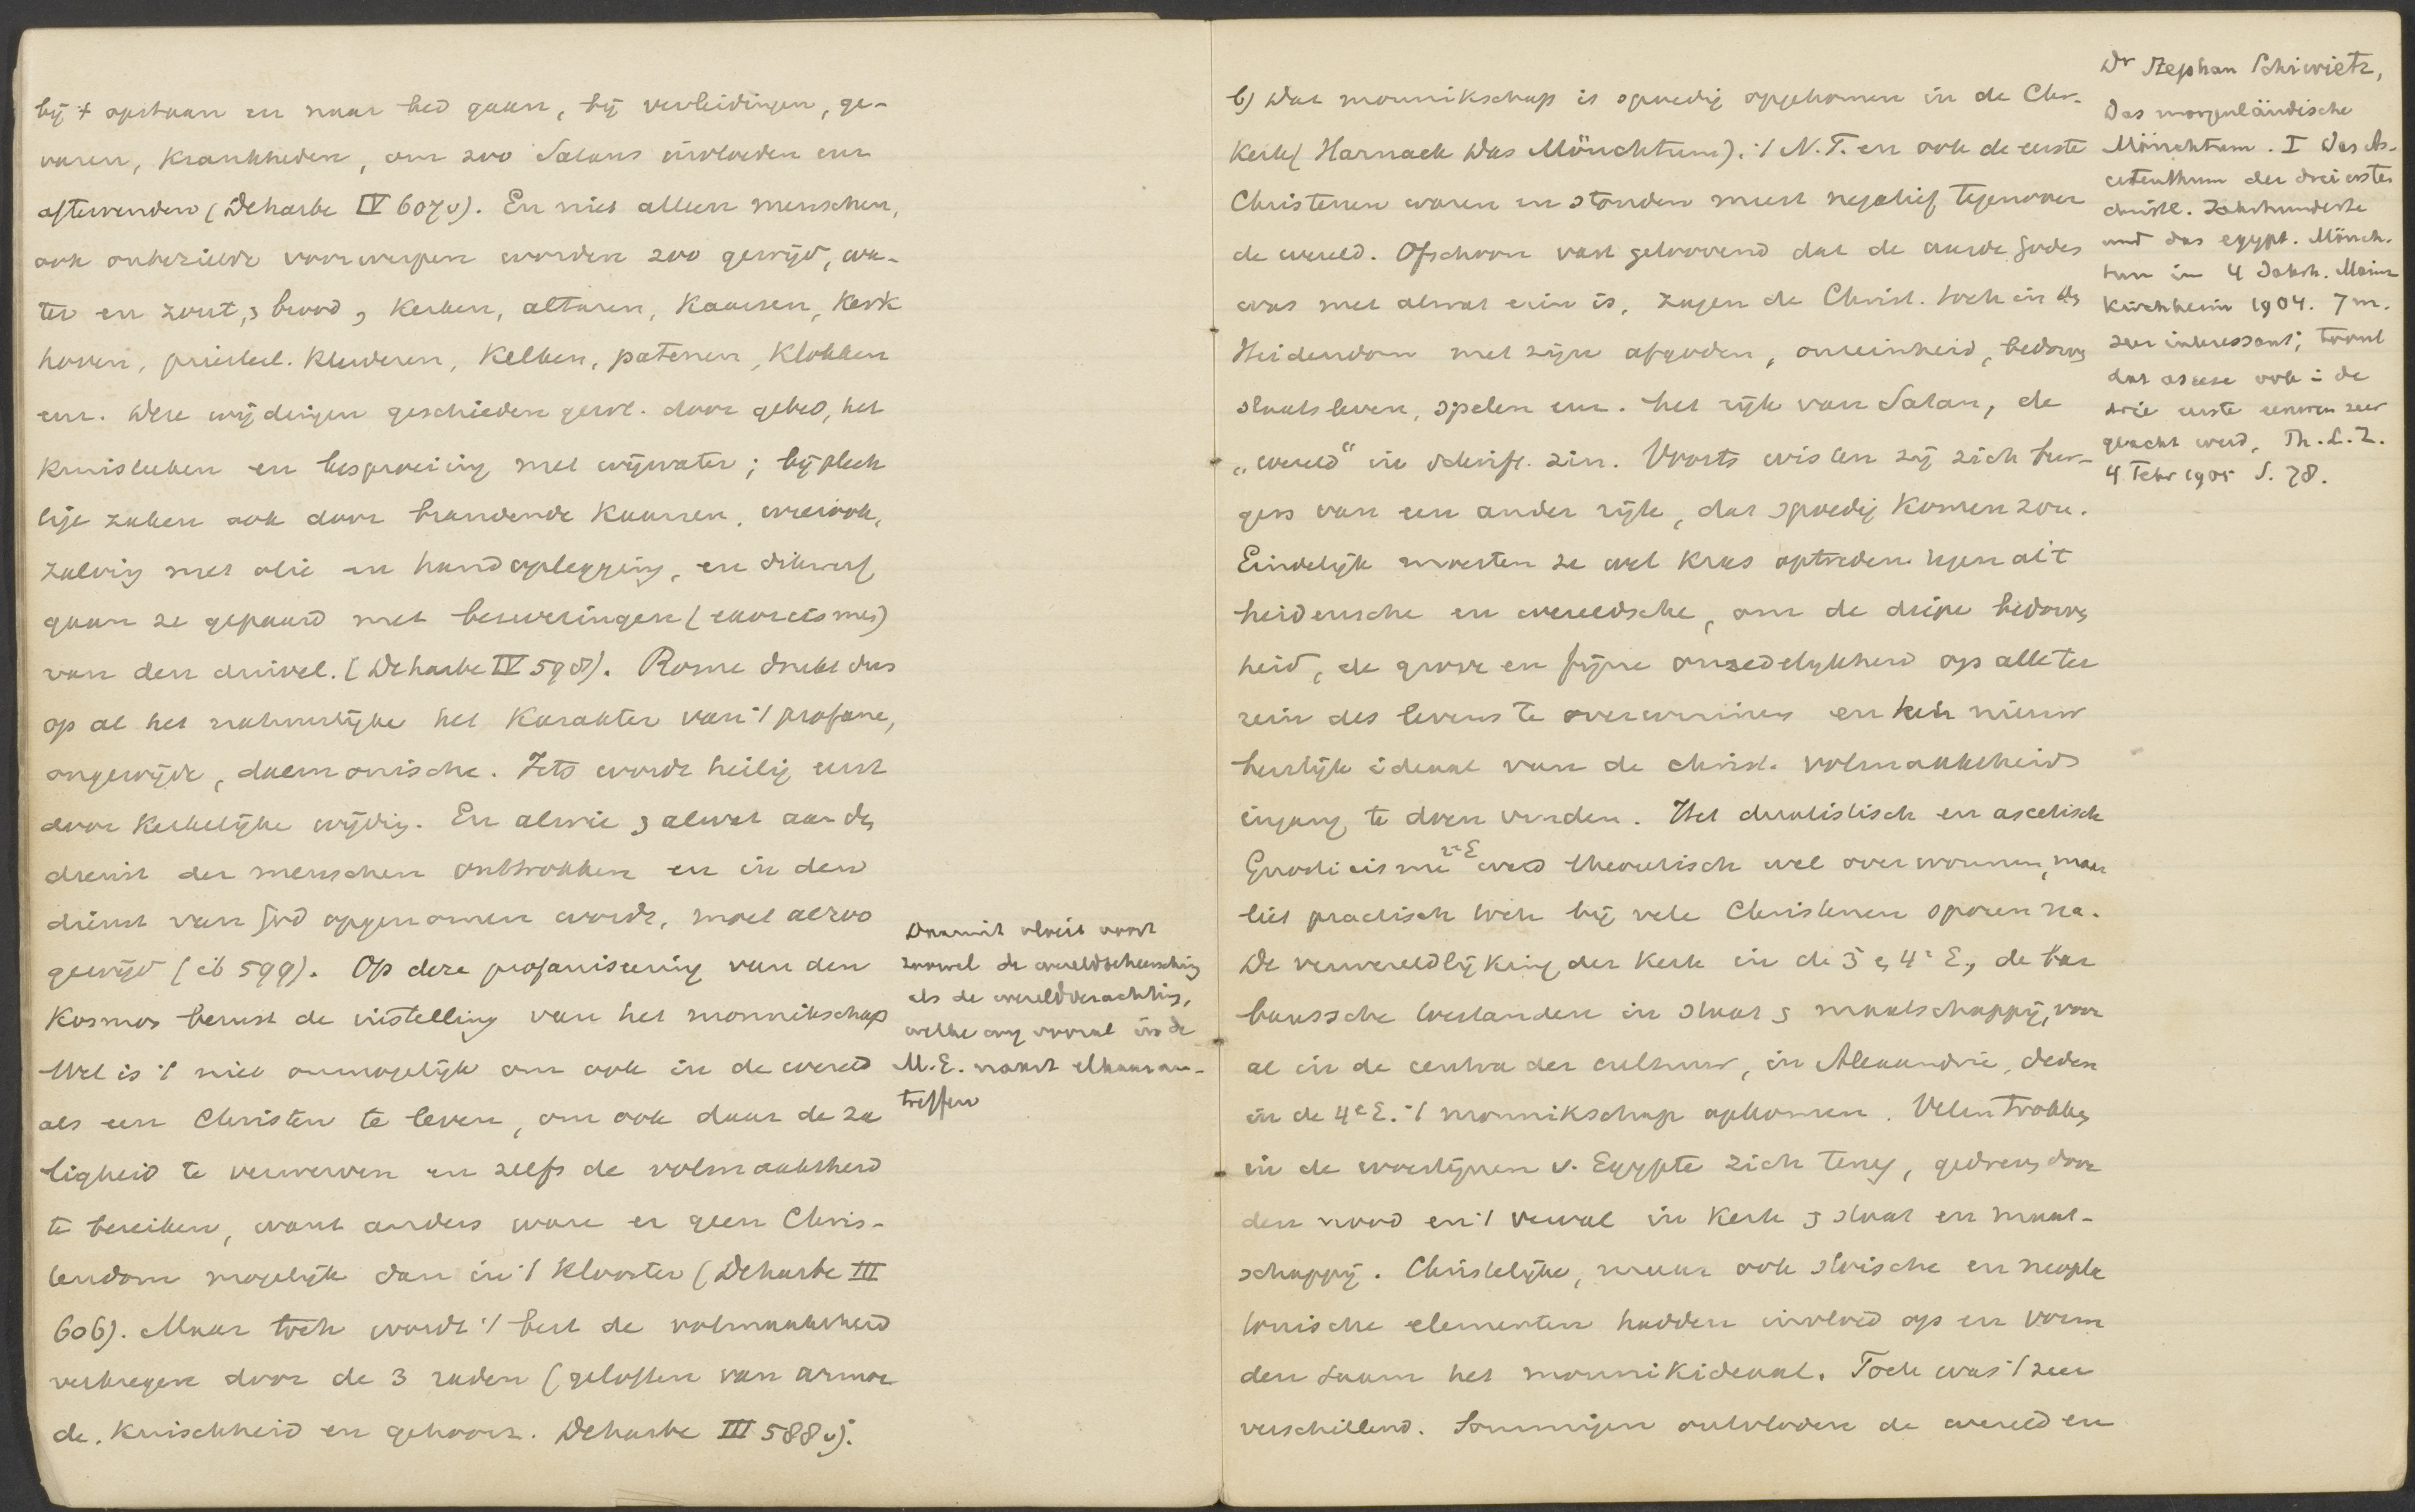 bij 't opstaan en naar bed gaan, bij verleidingen, ge-
varen, krankheden, om zoo Satans invloeden enz
aftewenden (Deharbe IV 607v). En niet alleen menschen,
ook onbezielde voorwerpen worden zoo gewijd, wa-
ter en zout, & brood, kerken, altaren, kaarsen, kerk
hoven, priesterl. kleederen, kelken, patenen, klokken
enz. Deze wijdingen geschieden gew. door gebed, het
kruisteeken en besproeiing met wijwater; bij plech
tige zaken ook door brandende kaarsen, wierook,
zalving met olie en handoplegging, en dikwerf
gaan ze gepaard met bezweringen (exorcismes)
van den duivel. (Deharbe IV 598). Rome drukt dus
op al het natuurlijke het karakter van 't profane,
ongewijde, daemonische. Iets wordt heilig eerst
door kerkelijke wijding. En alwie & alwat aan den
dienst der menschen onttrokken en in den
dienst van God opgenomen wordt, moet alzoo
gewijd (ib 599). Op deze profaniseering van den
kosmos berust de instelling van het monnikschap
Wel is 't niet onmogelijk om ook in de wereld
als een Christen te leven, om ook daar de za
ligheid te verwerven en zelfs de volmaaktheid
te bereiken, want anders ware er geen Chris-
tendom mogelijk dan in 't klooster (Deharbe III
606). Maar toch wordt 't best de volmaaktheid
verkregen door de 3 raden (geloften van armoe
de, kuischheid en gehoorz. Deharbe III 588v).
Daaruit vloeit voort
zoowel de wereldbeheersching
als de wereldverachting,
welke wij vooral in de
M.E. naast elkaar aan-
treffen
b) Das monnikschap is spoedig opgekomen in de Chr.
Kerk (Harnack Das Mönchtum). 't N.T. en ook de eerste
Christenen waren en stonden meest negatief tegenover
de wereld. Ofschoon vast geloovend dat de aarde Godes
was met alwat erin is, zagen de Christ. toch in 't
Heidendom met zijn afgoden, onreinheid, bedorven
staatsleven, spelen enz. het rijk van Satan, de
„wereld" in schrift. zin. Voorts wisten zij zich bur-
gers van een ander rijk, dat spoedig komen zou.
Eindelijk moesten ze wel kras optreden tegen al 't
heidensche en wereldsche, om de diepe bedorven
heid, de grove en fijne onzedelijkheid op alle ter
rein des levens te overwinnen en het nieuw
heerlijk ideaal van de christ. volmaaktheid
ingang te doen vinden. Het dualistisch en ascetisch
Gnosticisme 2e E werd theoretisch wel overwonnen, maar
liet practisch toch bij vele Christenen sporen na.
De verwereldlijking der kerk in de 3 & 4e E, de bar
baarsche toestanden in staat & maatschappij, voor
al in de centra der cultuur, in Alexandrie, deden
in de 4e E. 't monnikschap opkomen. Velen trokken
in de woestijnen v. Egypte zich terug, gedreven door
den nood en 't verval in kerk & staat en maat-
schappij. Christelijke, maar ook stoische en neopla
tonische elementen hadden invloed op en vorm
den saam het monnikideaal. Toch was 't zeer
verschillend. Sommigen ontvloden de wereld en
Dr Stephan Schiwietz,
Das morgenländische
Mönchtum. I Das As-
cetenthum der drei ersten
christl. Jahrhunderte
und das egypt. Mönch-
tum im 4 Jahrh. Mainz
Kirchheim 1904. 7 m.
zeer interessant; toont
dat ascese ook in de
drie eerste eeuwen zeer
geacht werd, Th. L. Z.
4 Febr 1905 S. 78.